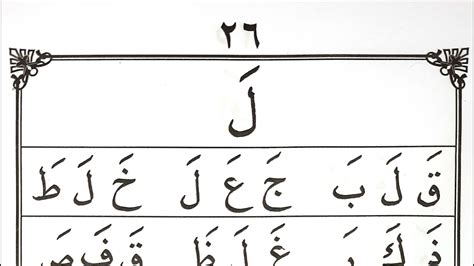 ٢٦
لَ
قَ لَ بَ جَ عَ لَ خَ لَ طَ
غَ لَ ظَ قَ فَ صَ